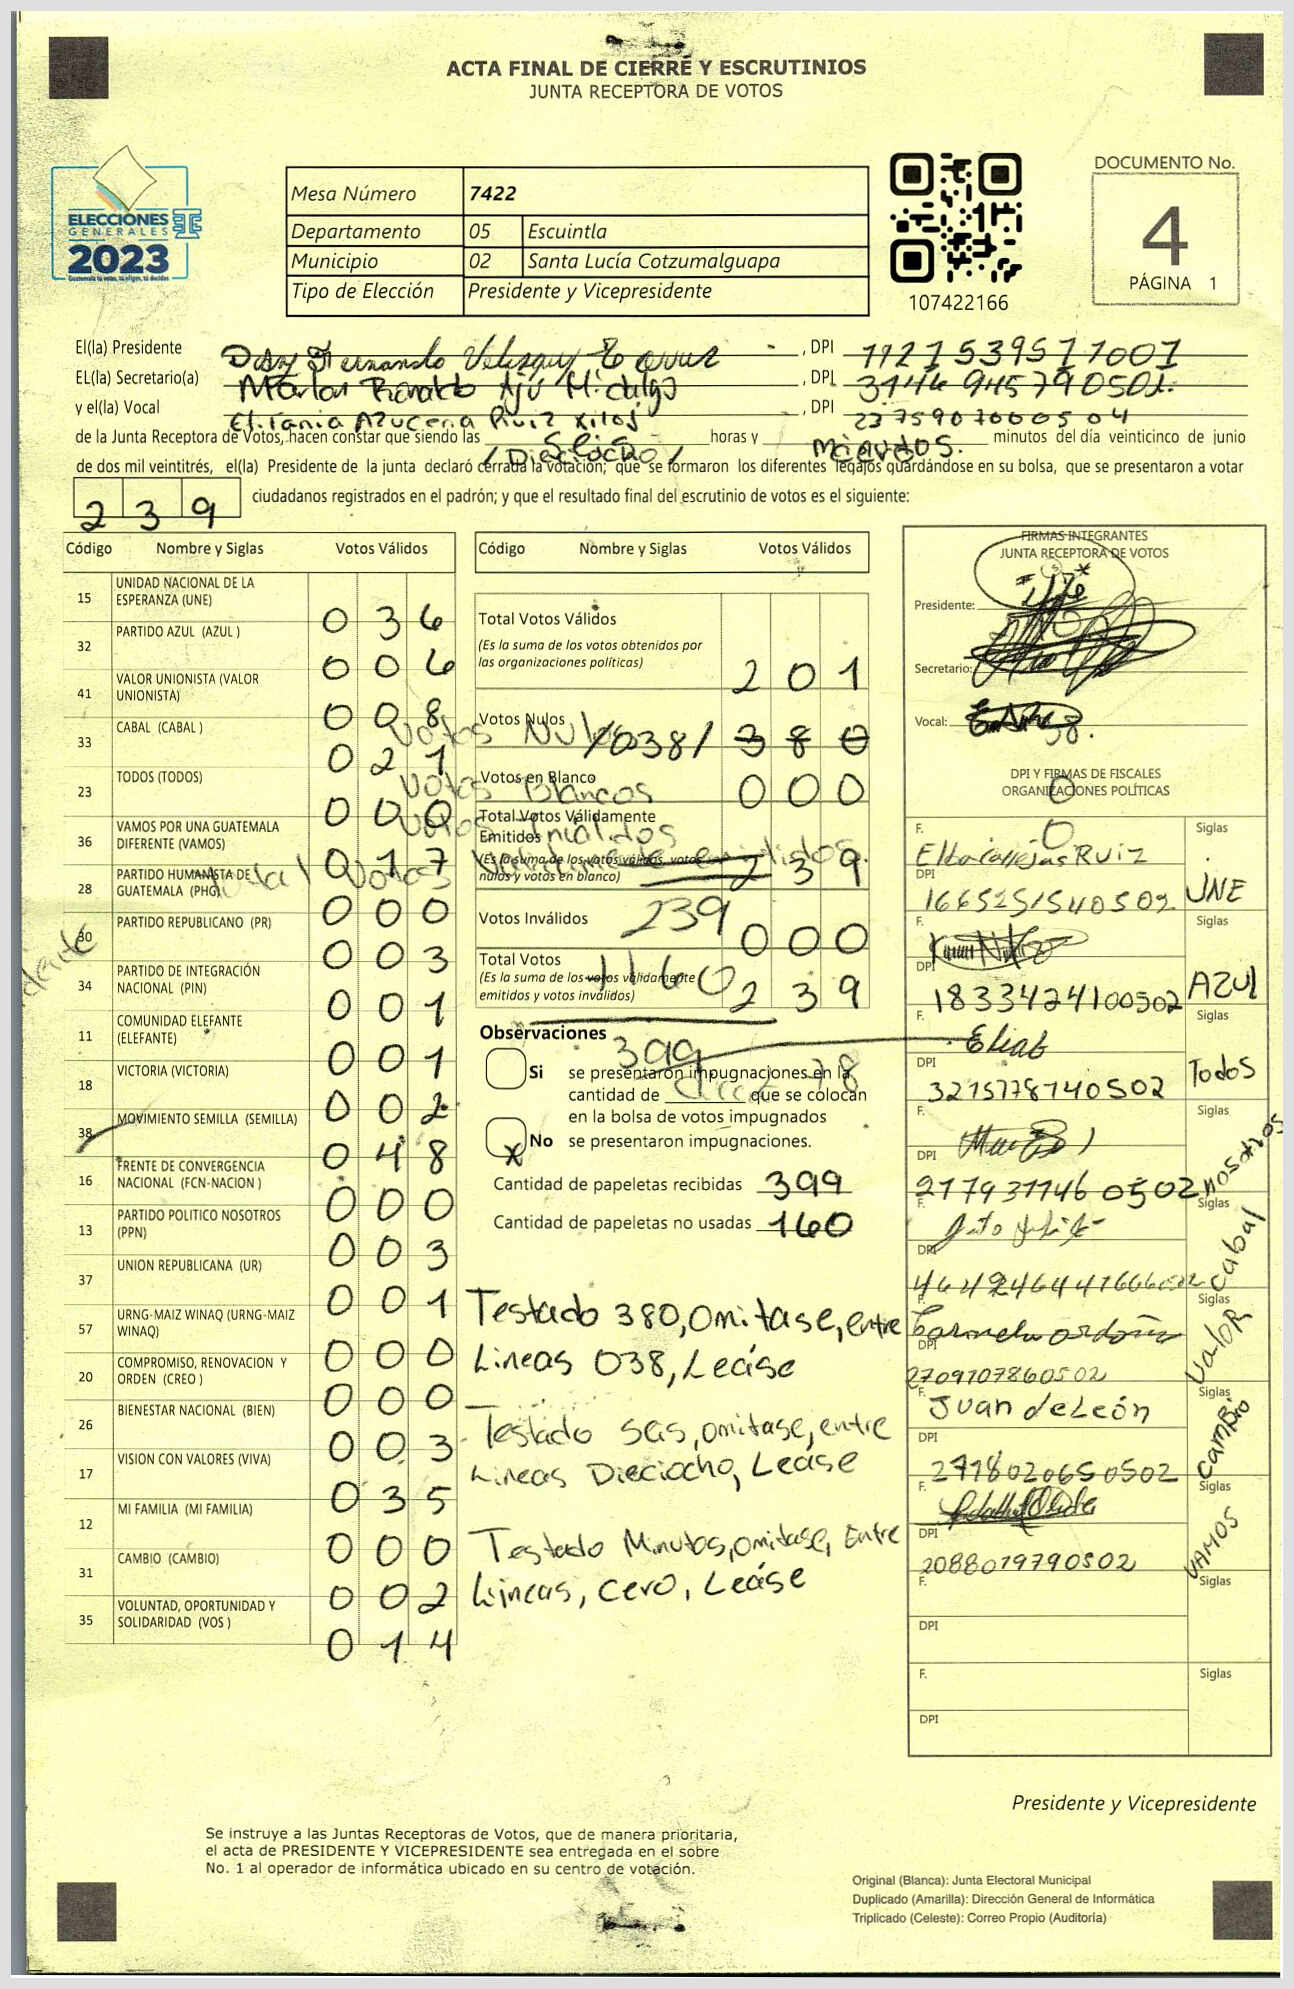 ACTA FINAL DE CIERRE Y ESCRUTINIOS
JUNTA RECEPTORA DE VOTOS
ELECCIONES
GENERALES
2023
Mesa Número 7422
Departamento 05 Escuintla
Municipio 02 Santa Lucía Cotzumalguapa
Tipo de Elección Presidente y Vicepresidente
107422166
DOCUMENTO No.
4
PÁGINA 1
El(la) Presidente Fernando , DPI
EL(la) Secretario(a) Marlon Ronaldo Ajú Hidalgo , DPI
y el(la) Vocal Azucena Ruiz Xiloj , DPI
de la Junta Receptora de Votos, hacen constar que siendo las Seis horas y Minutos. minutos del día veinticinco de junio
(Dieciocho)
de dos mil veintitrés, el(la) Presidente de la junta declaró cerrada la votación; que se formaron los diferentes legajos guardándose en su bolsa, que se presentaron a votar
239 ciudadanos registrados en el padrón; y que el resultado final del escrutinio de votos es el siguiente:
Código Nombre y Siglas Votos Válidos
15 UNIDAD NACIONAL DE LA ESPERANZA (UNE) 036
32 PARTIDO AZUL (AZUL ) 006
41 VALOR UNIONISTA (VALOR UNIONISTA) 008
33 CABAL (CABAL ) 021
23 TODOS (TODOS) 000
36 VAMOS POR UNA GUATEMALA DIFERENTE (VAMOS) 017
28 PARTIDO HUMANISTA DE GUATEMALA (PHG) 000
30 PARTIDO REPUBLICANO (PR) 003
34 PARTIDO DE INTEGRACIÓN NACIONAL (PIN) 001
11 COMUNIDAD ELEFANTE (ELEFANTE) 001
18 VICTORIA (VICTORIA) 002
38 MOVIMIENTO SEMILLA (SEMILLA) 048
16 FRENTE DE CONVERGENCIA NACIONAL (FCN-NACION ) 000
13 PARTIDO POLITICO NOSOTROS (PPN) 003
37 UNION REPUBLICANA (UR) 001
57 URNG-MAIZ WINAQ (URNG-MAIZ WINAQ) 000
20 COMPROMISO, RENOVACION Y ORDEN (CREO ) 000
26 BIENESTAR NACIONAL (BIEN) 003
17 VISION CON VALORES (VIVA) 035
12 MI FAMILIA (MI FAMILIA) 000
31 CAMBIO (CAMBIO) 002
35 VOLUNTAD, OPORTUNIDAD Y SOLIDARIDAD (VOS ) 014
Código Nombre y Siglas Votos Válidos
Total Votos Válidos 201
(Es la suma de los votos obtenidos por
las organizaciones políticas)
Votos Nulos /038/ 380
Votos Nulos
Votos en Blanco 000
Votos Blancos
Total Votos Válidamente
Emitidos 239
(Es la suma de los votos válidos, votos
nulos y votos en blanco)
Total Votos emitidos.
Votos Inválidos 000
239
Total Votos 239
(Es la suma de los votos válidamente
emitidos y votos inválidos)
160
Observaciones
399
Si se presentaron impugnaciones en la
cantidad de que se colocan
en la bolsa de votos impugnados
X No se presentaron impugnaciones.
Cantidad de papeletas recibidas 399
Cantidad de papeletas no usadas 160
Testado 380, Omitase, entre
Lineas 038, Leáse
Testado seis, omitase, entre
Lineas Dieciocho, Leáse
Testado Minutos, omitase, Entre
Lineas, Cero, Leáse
FIRMAS INTEGRANTES
JUNTA RECEPTORA DE VOTOS
Presidente:
Secretario:
Vocal:
DPI Y FIRMAS DE FISCALES
ORGANIZACIONES POLÍTICAS
F. Elba Callejas Ruiz Siglas
DPI 1665251540502 UNE
F. Siglas
DPI 1833424100502 AZUL
F. Eliab Siglas
DPI 3215778140502 Todos
F. Siglas
DPI 2177931146 0502 nosotros
F. Siglas
DPI cabal
F. Carmela Ordoñ Siglas
DPI 2709107860502 VALOR
F. Juan de León Siglas
DPI 2718020650502 Cambio
F. Siglas
DPI 2088019790502 VAMOS
F. Siglas
DPI
F. Siglas
DPI
Presidente y Vicepresidente
Se instruye a las Juntas Receptoras de Votos, que de manera prioritaria,
el acta de PRESIDENTE Y VICEPRESIDENTE sea entregada en el sobre
No. 1 al operador de informática ubicado en su centro de votación.
Original (Blanca): Junta Electoral Municipal
Duplicado (Amarilla): Dirección General de Informática
Triplicado (Celeste): Correo Propio (Auditoría)